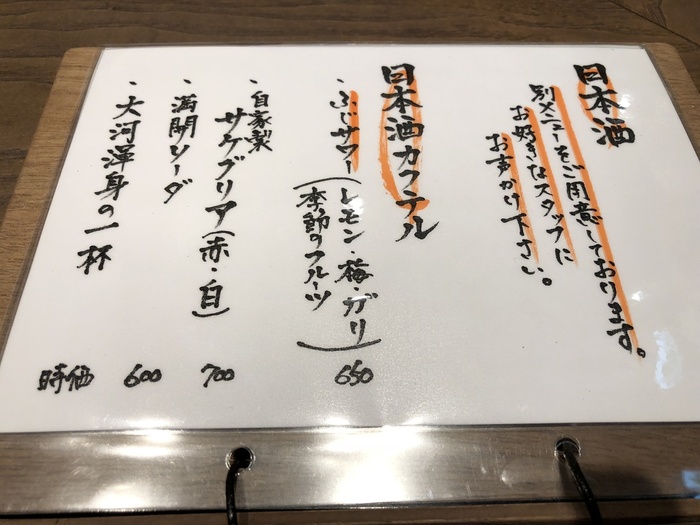 日本酒
別メニューをご用意しております。
お好きなスタッフに
お声がけ下さい。
日本酒カクテル
・ふじサワー(レモン・梅・ガリ
季節のフルーツ) 650
・自家製
サケグリア(赤・白) 700
・満開ソーダ 600
・大河渾身の一杯 時価